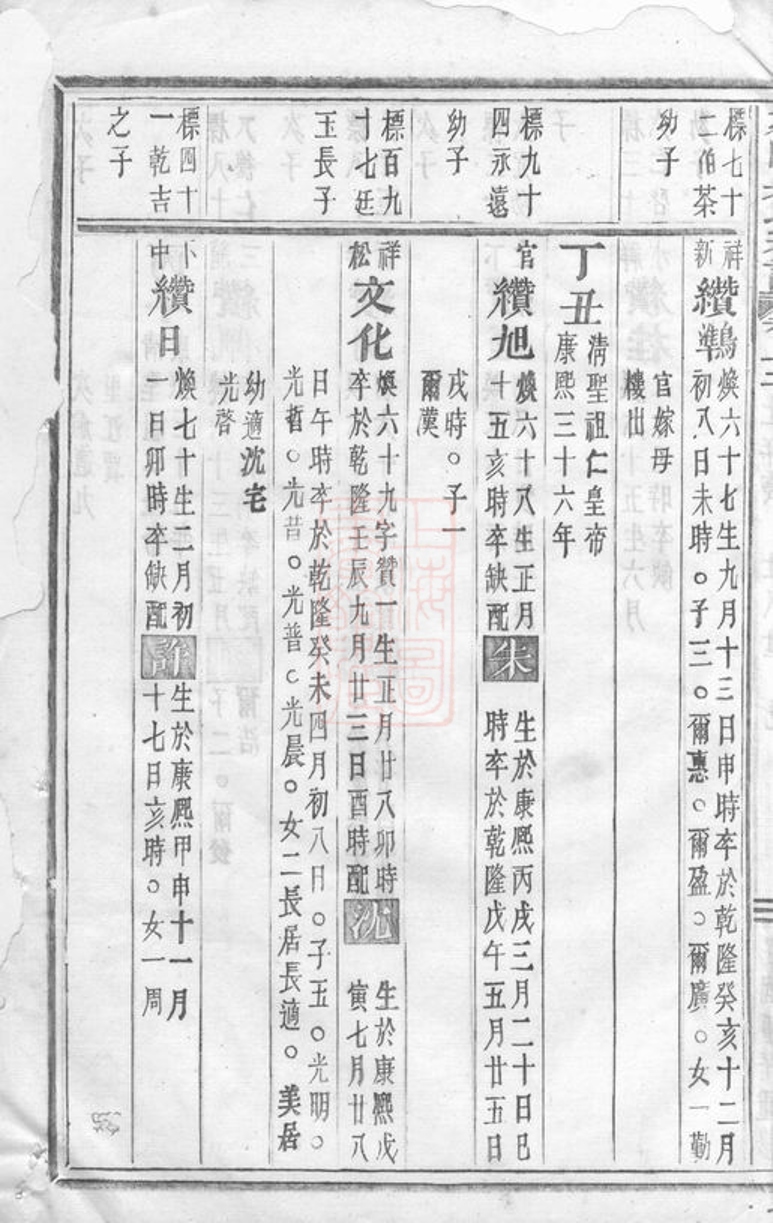 標七十
二伯茶
幼子
祥新
纘鵝準
煥六十七生九月十三日申時卒於乾隆癸亥十二月
初八日未時。子三。爾惠。爾盈。爾廣。女一勤
官嫁毋
樓出
丁丑
清聖祖仁皇帝
康熙三十六年
標九十
四永遠
幼子
官
纘旭
煥六十八生正月
十五亥時卒缺配
朱
生於康熙丙戌三月二十日巳
時卒於乾隆戊午五月廿五日
戌時。子一
爾漢
標百九
十七廷
玉長子
祥松
文化
煥六十九字贊一生正月廿八卯時
卒於乾隆壬辰九月廿三日酉時配
沈
生於康熙戊
寅七月廿八
日午時卒於乾隆癸未四月初八日。子五。光明。
光哲。光昔。光普。光晨。女二長居長適。美居
幼適沈宅
光啓
標四十
一乾吉
之子
卜中
纘日
煥七十生二月初
一日卯時卒缺配
許
生於康熙甲申十一月
十七日亥時。女一周